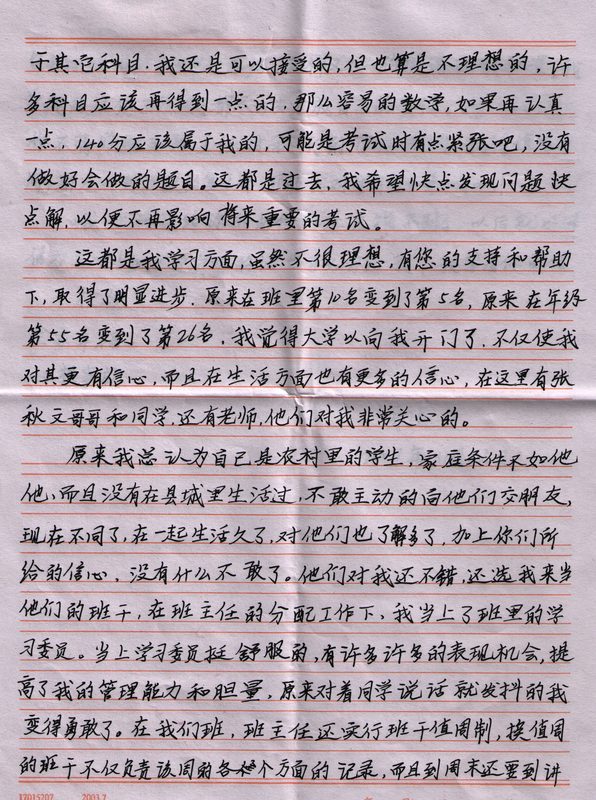 于其它科目.我还是可以接受的,但也算是不理想的,许
多科目应该再得到一点的,那么容易的数学,如果再认真
一点,140分应该属于我的,可能是考试时有点紧张吧,没有
做好会做的题目。这都是过去,我希望快点发现问题快
点解,以便不再影响将来重要的考试。
这都是我学习方面,虽然不很理想,有您的支持和帮助
下,取得了明显进步.原来在班里第10名变到了第5名,原来在年级
第55名变到了第26名.我觉得大学以向我开门了.不仅使我
对其更有信心,而且在生活方面也有更多的信心,在这里有张
秋文哥哥和同学,还有老师,他们对我非常关心的。
原来我总认为自己是农村里的学生,家庭条件不如他
他、而且没有在县城里生活过,不敢主动的向他们交朋友,
现在不同了,在一起生活久了,对他们也了解多了,加上你们所
给的信心,没有什么不敢了。他们对我还不错,还选我来当
他们的班干,在班主任的分配工作下、我当上了班里的学
习委员。当上学习委员挺舒服的,有许多许多的表现机会,提
高了我的管理能力和胆量,原来对着同学说话就发抖的我
变得勇敢了。在我们班,班主任还实行班干值周制,挨值周
的班干不仅负责该周的各个方面的记录,而且到周末还要到讲
17015207 2003.7